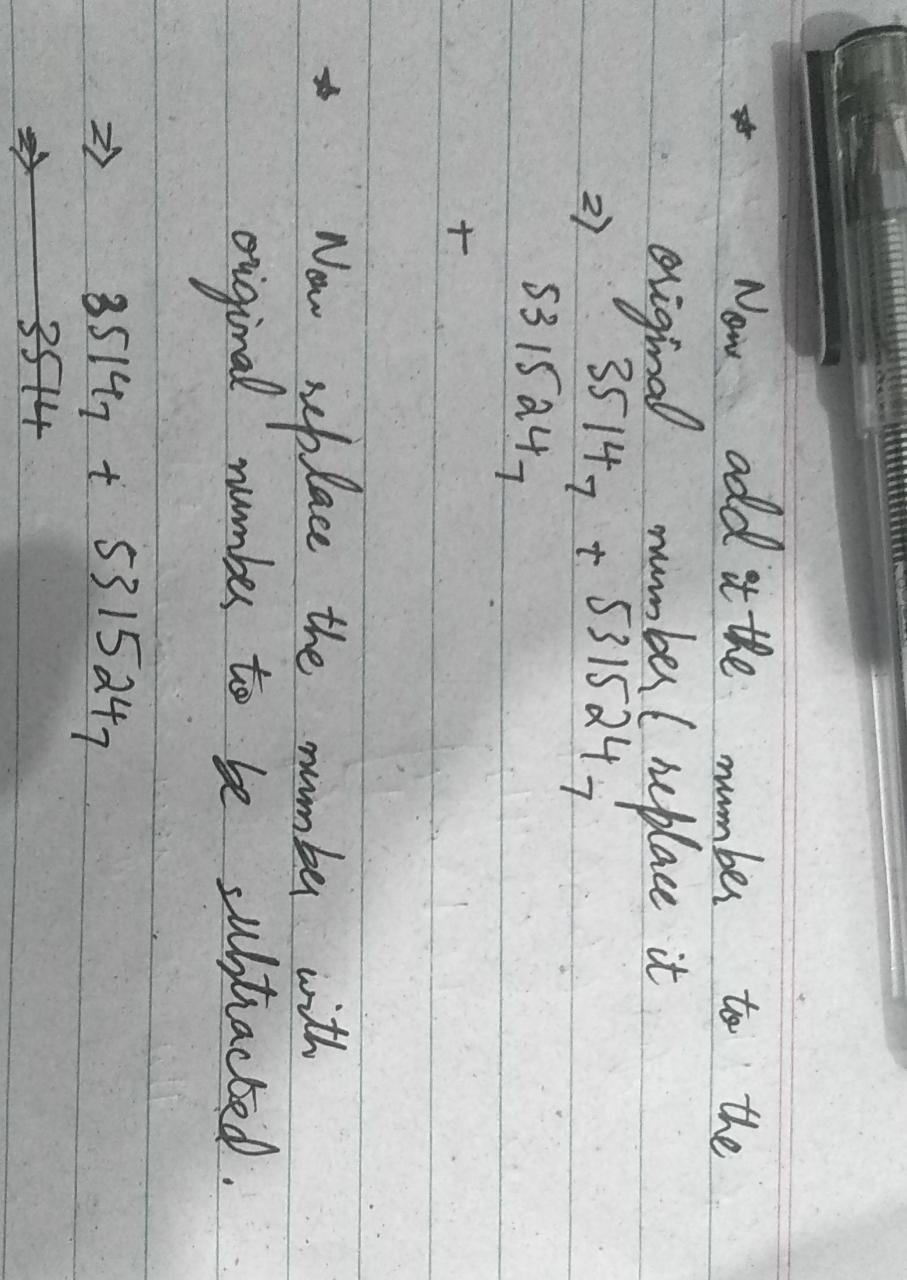 * Now add it the number to the
original number (replace it
=> 3514₇ + 531524₇
531524₇
+
* Now replace the number with
original number to be subtracted.
=> 3514₇ + 531524₇
=> 3514